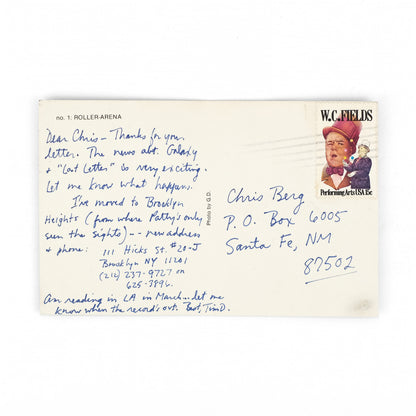 no. 1: ROLLER-ARENA
Dear Chris— Thanks for your
letter. The news abt. Galaxy
+ "Last Letter" is very exciting.
Let me know what happens.
I've moved to Brooklyn
Heights (from where Patty's only
seen the sights) -- new address
+ phone: 111 Hicks St. #20-J
Brooklyn NY 11201
(212) 237-9727 or
625-3896.
Am reading in LA in March... let me
know when the record's out. Best, Tim D.
Photo by G.D.
W.C.FIELDS
Performing Arts USA 15c
Chris Berg
P.O. Box 6005
Santa Fe, NM
87502